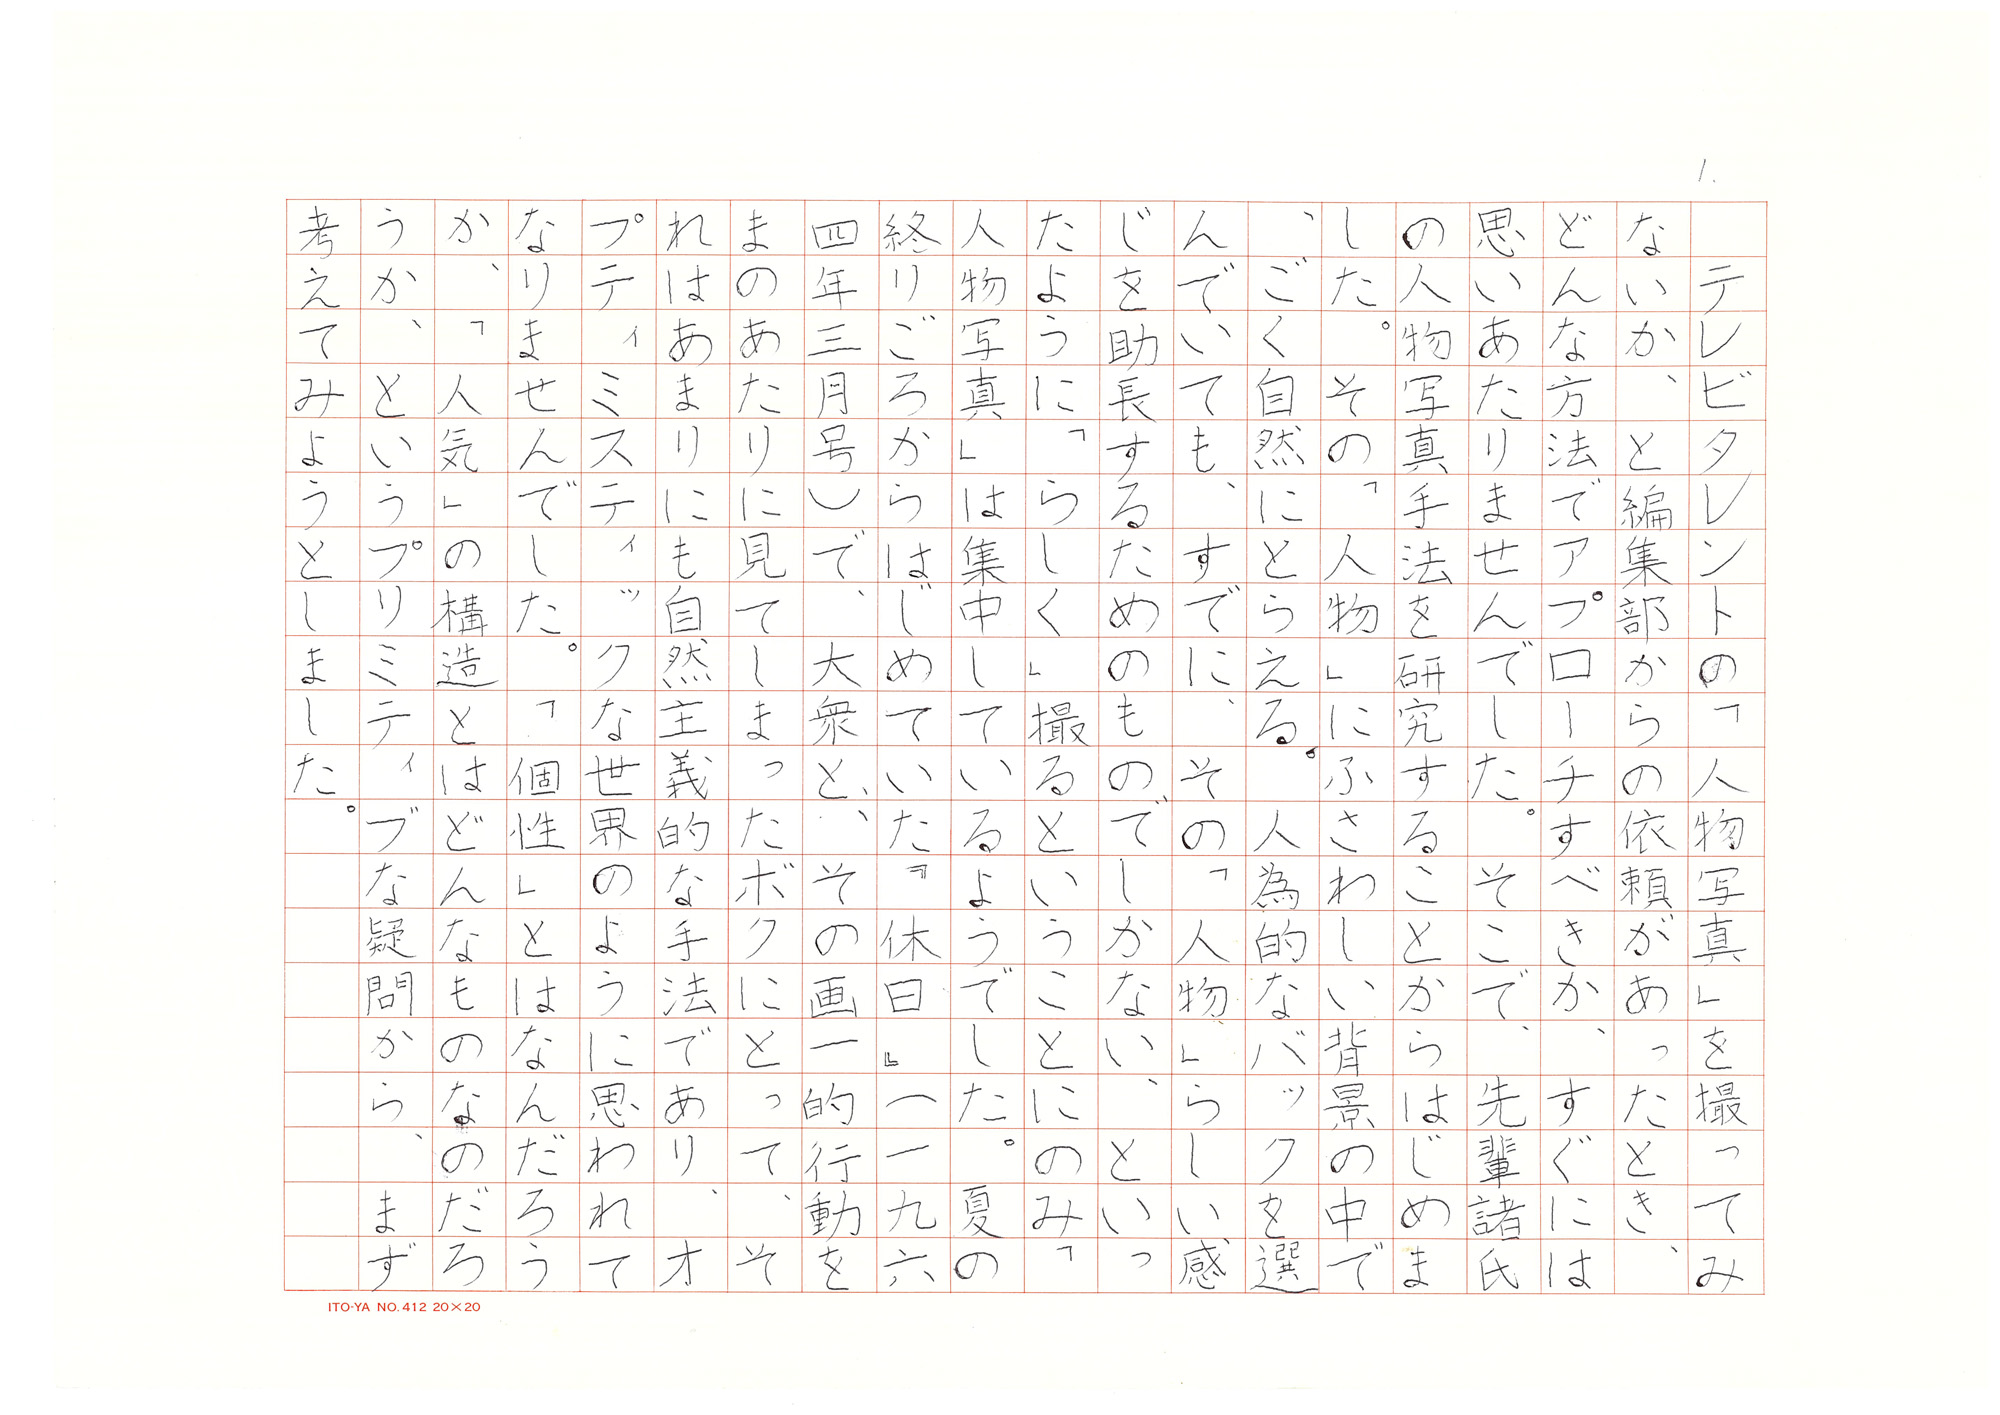 1.
テレビタレントの「人物写真」を撮ってみ
ないか、と編集部からの依頼があったとき、
どんな方法でアプローチすべきか、すぐには
思いあたりませんでした。そこで、先輩諸氏
の人物写真手法を研究することからはじめま
した。その「人物」にふさわしい背景の中で
、ごく自然にとらえる。人為的なバックを選
んでいても、すでに、その「人物」らしい感
じを助長するためのものでしかない、といっ
たように「らしく」撮るということにのみ「
人物写真」は集中しているようでした。夏の
終りごろからはじめていた『休日』(一九六
四年三月号)で、大衆と、その画一的行動を
まのあたりに見てしまったボクにとって、そ
れはあまりにも自然主義的な手法であり、オ
プティミスティックな世界のように思われて
なりませんでした。「個性」とはなんだろう
か、「人気」の構造とはどんなものなのだろ
うか、というプリミティブな疑問から、まず
考えてみようとしました。
ITO-YA NO.412 20×20